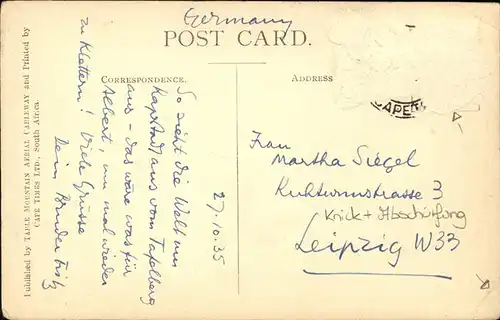 Germany
POST CARD.
CORRESPONDENCE.
ADDRESS
27.10.35
So sieht die Welt um
Kapstadt aus vom Tafelberg
aus – das wäre was für
Albert, um mal wieder
zu Klettern! Viele Grüsse
Dein Bruder Fritz
CAPE
Frau
Martha Siegel
Kuhturmstrasse 3
Knick + Abschürfung
Leipzig W33
Published by TABLE MOUNTAIN AERIAL CABLEWAY and Printed by
CAPE TIMES LTD., South Africa.